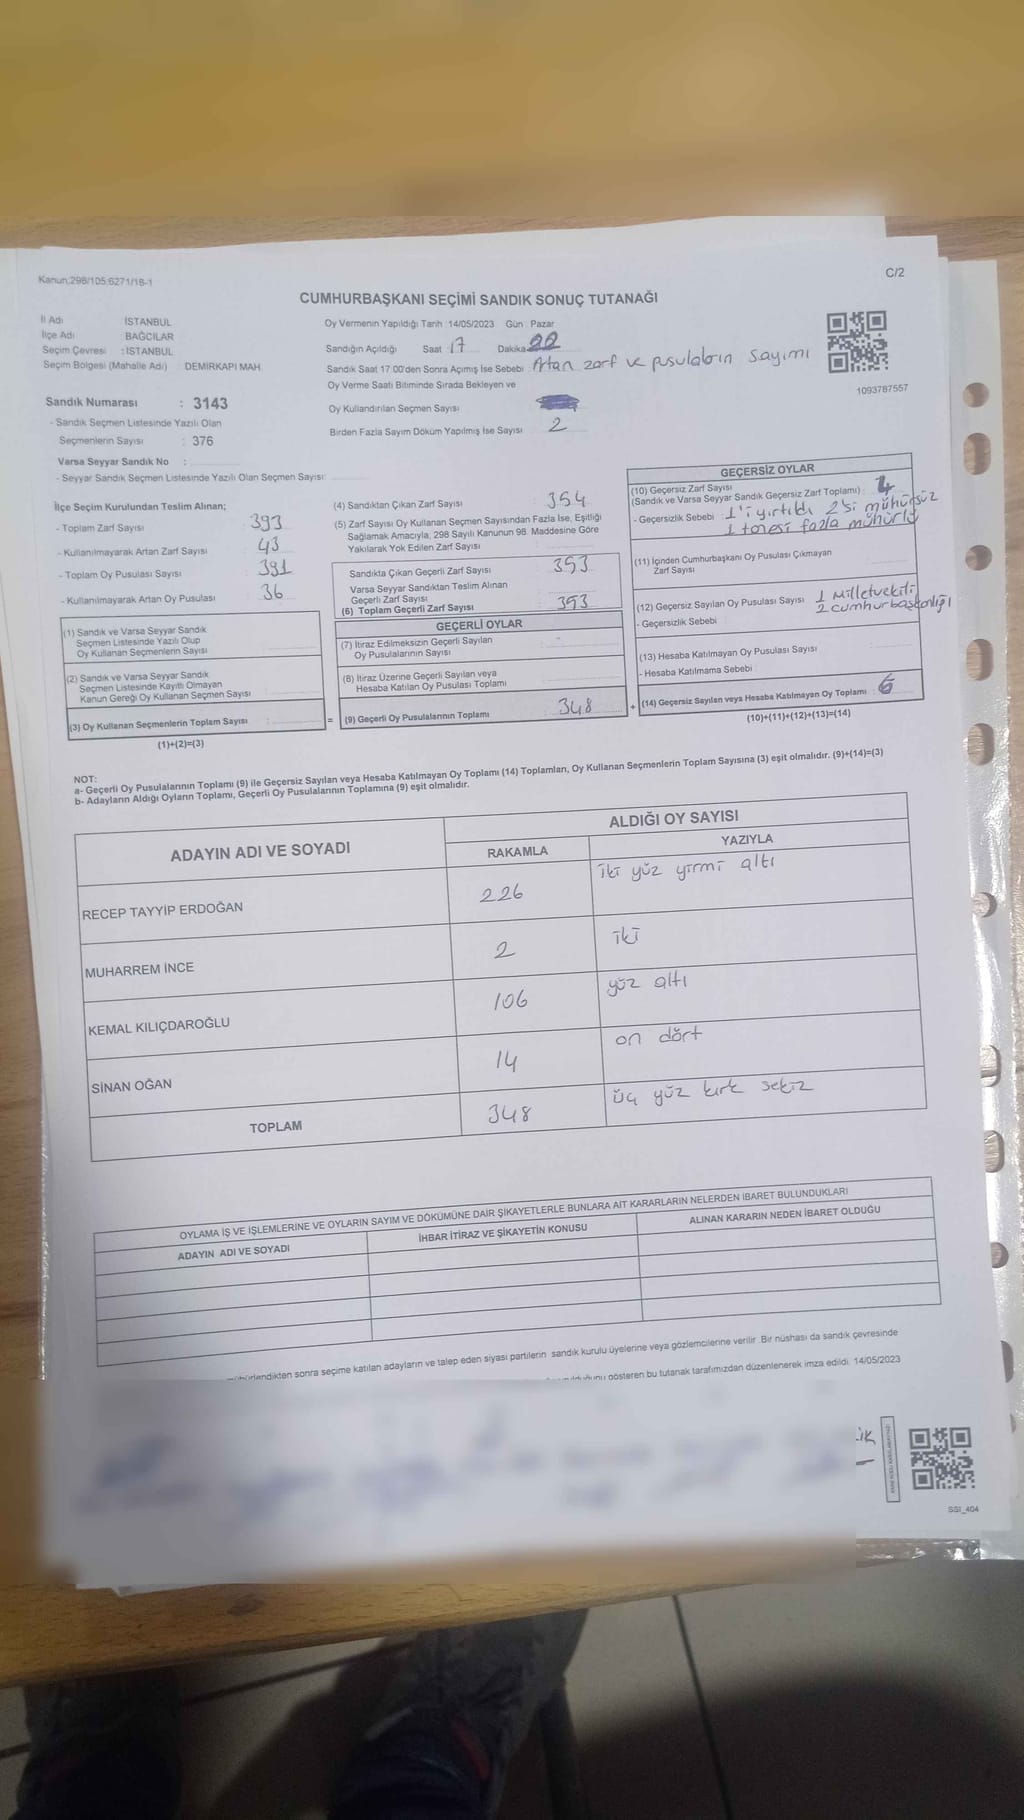 Kanun:298/105;6271/18-1
C/2
CUMHURBAŞKANI SEÇİMİ SANDIK SONUÇ TUTANAĞI
İl Adı : İSTANBUL
İlçe Adı : BAĞCILAR
Seçim Çevresi : İSTANBUL
Seçim Bölgesi (Mahalle Adı) : DEMİRKAPI MAH.
Oy Vermenin Yapıldığı Tarih :14/05/2023 Gün : Pazar
Sandığın Açıldığı Saat 17 Dakika 22
Sandık Saat 17.00'den Sonra Açılmış İse Sebebi : Artan zarf ve pusulaların sayımı
Oy Verme Saati Bitiminde Sırada Bekleyen ve
Oy Kullandırılan Seçmen Sayısı
Birden Fazla Sayım Döküm Yapılmış İse Sayısı 2
1093787557
Sandık Numarası : 3143
- Sandık Seçmen Listesinde Yazılı Olan
Seçmenlerin Sayısı : 376
Varsa Seyyar Sandık No :
- Seyyar Sandık Seçmen Listesinde Yazılı Olan Seçmen Sayısı:
İlçe Seçim Kurulundan Teslim Alınan;
- Toplam Zarf Sayısı : 393
- Kullanılmayarak Artan Zarf Sayısı : 43
- Toplam Oy Pusulası Sayısı : 391
- Kullanılmayarak Artan Oy Pusulası : 36
(1) Sandık ve Varsa Seyyar Sandık
Seçmen Listesinde Yazılı Olup
Oy Kullanan Seçmenlerin Sayısı
(2) Sandık ve Varsa Seyyar Sandık
Seçmen Listesinde Kayıtlı Olmayan
Kanun Gereği Oy Kullanan Seçmen Sayısı
(3) Oy Kullanan Seçmenlerin Toplam Sayısı :
(1)+(2)=(3)
(4) Sandıktan Çıkan Zarf Sayısı : 354
(5) Zarf Sayısı Oy Kullanan Seçmen Sayısından Fazla İse, Eşitliği
Sağlamak Amacıyla; 298 Sayılı Kanunun 98. Maddesine Göre
Yakılarak Yok Edilen Zarf Sayısı
Sandıkta Çıkan Geçerli Zarf Sayısı : 353
Varsa Seyyar Sandıktan Teslim Alınan
Geçerli Zarf Sayısı
(6) Toplam Geçerli Zarf Sayısı : 353
GEÇERLİ OYLAR
(7) İtiraz Edilmeksizin Geçerli Sayılan
Oy Pusulalarının Sayısı
(8) İtiraz Üzerine Geçerli Sayılan veya
Hesaba Katılan Oy Pusulası Toplamı
= (9) Geçerli Oy Pusulalarının Toplamı : 348
GEÇERSİZ OYLAR
(10) Geçersiz Zarf Sayısı
(Sandık ve Varsa Seyyar Sandık Geçersiz Zarf Toplamı) : 4
- Geçersizlik Sebebi : 1'i yırtıldı 2'si mühürsüz
1 tanesi fazla mühürlü
(11) İçinden Cumhurbaşkanı Oy Pusulası Çıkmayan
Zarf Sayısı
(12) Geçersiz Sayılan Oy Pusulası Sayısı : 1 Milletvekili
2 cumhurbaşkanlığı
- Geçersizlik Sebebi :
(13) Hesaba Katılmayan Oy Pusulası Sayısı :
- Hesaba Katılmama Sebebi :
+ (14) Geçersiz Sayılan veya Hesaba Katılmayan Oy Toplamı : 6
(10)+(11)+(12)+(13)=(14)
NOT:
a- Geçerli Oy Pusulalarının Toplamı (9) ile Geçersiz Sayılan veya Hesaba Katılmayan Oy Toplamı (14) Toplamları, Oy Kullanan Seçmenlerin Toplam Sayısına (3) eşit olmalıdır. (9)+(14)=(3)
b- Adayların Aldığı Oyların Toplamı, Geçerli Oy Pusulalarının Toplamına (9) eşit olmalıdır.
ADAYIN ADI VE SOYADI
ALDIĞI OY SAYISI
RAKAMLA
YAZIYLA
RECEP TAYYİP ERDOĞAN 226 iki yüz yirmi altı
MUHARREM İNCE 2 iki
KEMAL KILIÇDAROĞLU 106 yüz altı
SİNAN OĞAN 14 on dört
TOPLAM 348 üç yüz kırk sekiz
OYLAMA İŞ VE İŞLEMLERİNE VE OYLARIN SAYIM VE DÖKÜMÜNE DAİR ŞİKAYETLERLE BUNLARA AİT KARARLARIN NELERDEN İBARET BULUNDUKLARI
ADAYIN ADI VE SOYADI
İHBAR İTİRAZ VE ŞİKAYETİN KONUSU
ALINAN KARARIN NEDEN İBARET OLDUĞU
sonra seçime katılan adayların ve talep eden siyasi partilerin sandık kurulu üyelerine veya gözlemcilerine verilir. Bir nüshası da sandık çevresinde
gösteren bu tutanak tarafımızdan düzenlenerek imza edildi. 14/05/2023
SSI_404